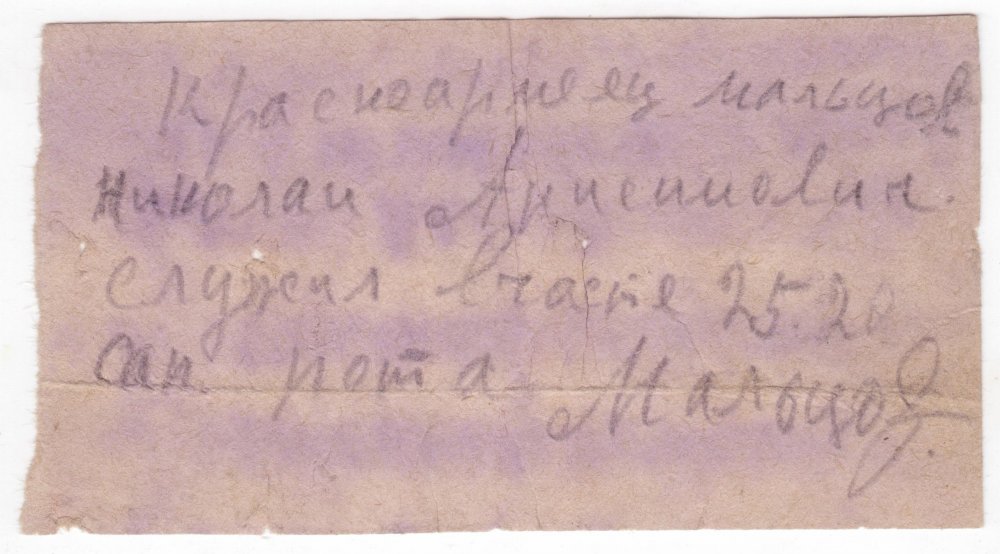 Красноармеец мальцов
Николай Архипович.
служил в часте 25.20
сан рота Мальцов